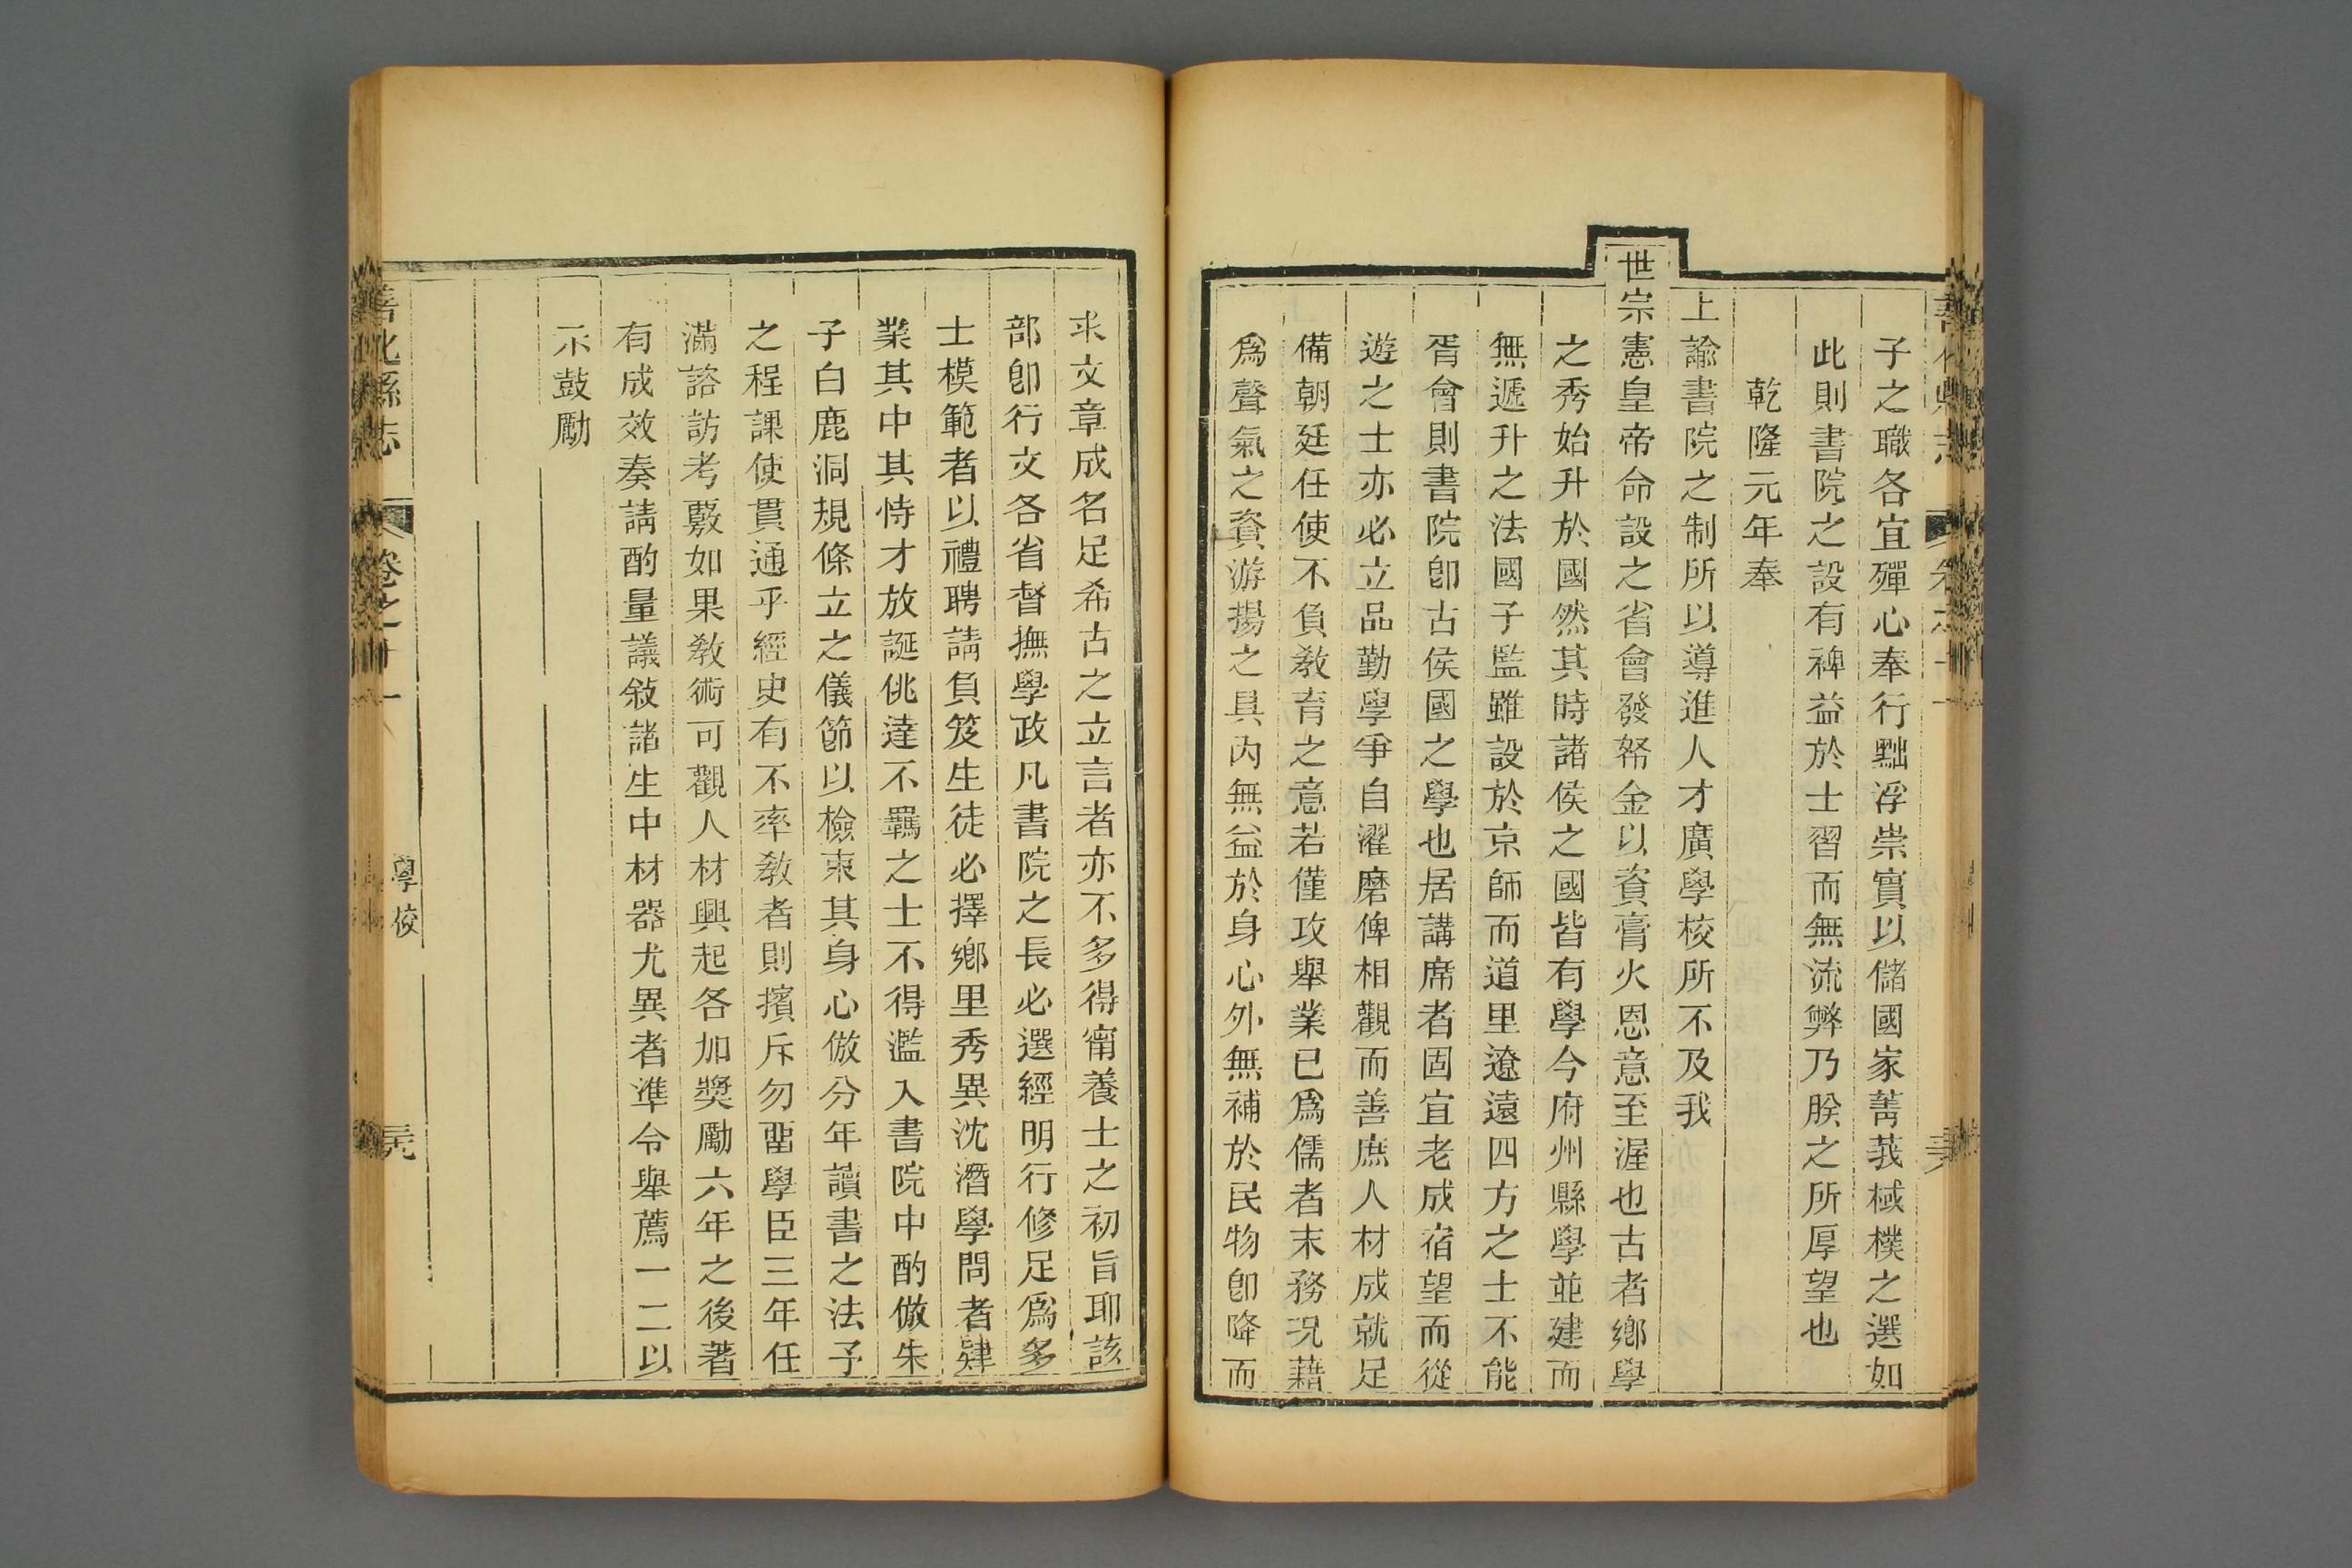 子之職各宜殫心奉行黜浮崇實以儲國家菁莪棫樸之選如
此則書院之設有裨益於士習而無流弊乃朕之所厚望也
乾隆元年奉
上諭書院之制所以導進人才廣學校所不及我
世宗憲皇帝命設之省會發帑金以資膏火恩意至渥也古者鄉學
之秀始升於國然其時諸侯之國皆有學今府州縣學並建而
無遞升之法國子監雖設於京師而道里遼遠四方之士不能
胥會則書院卽古侯國之學也居講席者固宜老成宿望而從
遊之士亦必立品勤學爭自濯磨俾相觀而善庶人材成就足
備朝廷任使不負敎育之意若僅攻舉業已爲儒者末務况藉
爲聲氣之資游揚之具內無益於身心外無補於民物卽降而
求文章成名足希古之立言者亦不多得甯養士之初旨耶該
部卽行文各省督撫學政凡書院之長必選經明行修足爲多
士模範者以禮聘請負笈生徒必擇鄉里秀異沈潛學問者肄
業其中其恃才放誕佻達不羈之士不得濫入書院中酌倣朱
子白鹿洞規條立之儀節以檢束其身心倣分年讀書之法予
之程課使貫通乎經史有不率敎者則擯斥勿畱學臣三年任
滿諮訪考覈如果敎術可觀人材興起各加獎勵六年之後著
有成效奏請酌量議敍諸生中材器尤異者準令舉薦一二以
示鼓勵
善化縣志 卷之十一 學校